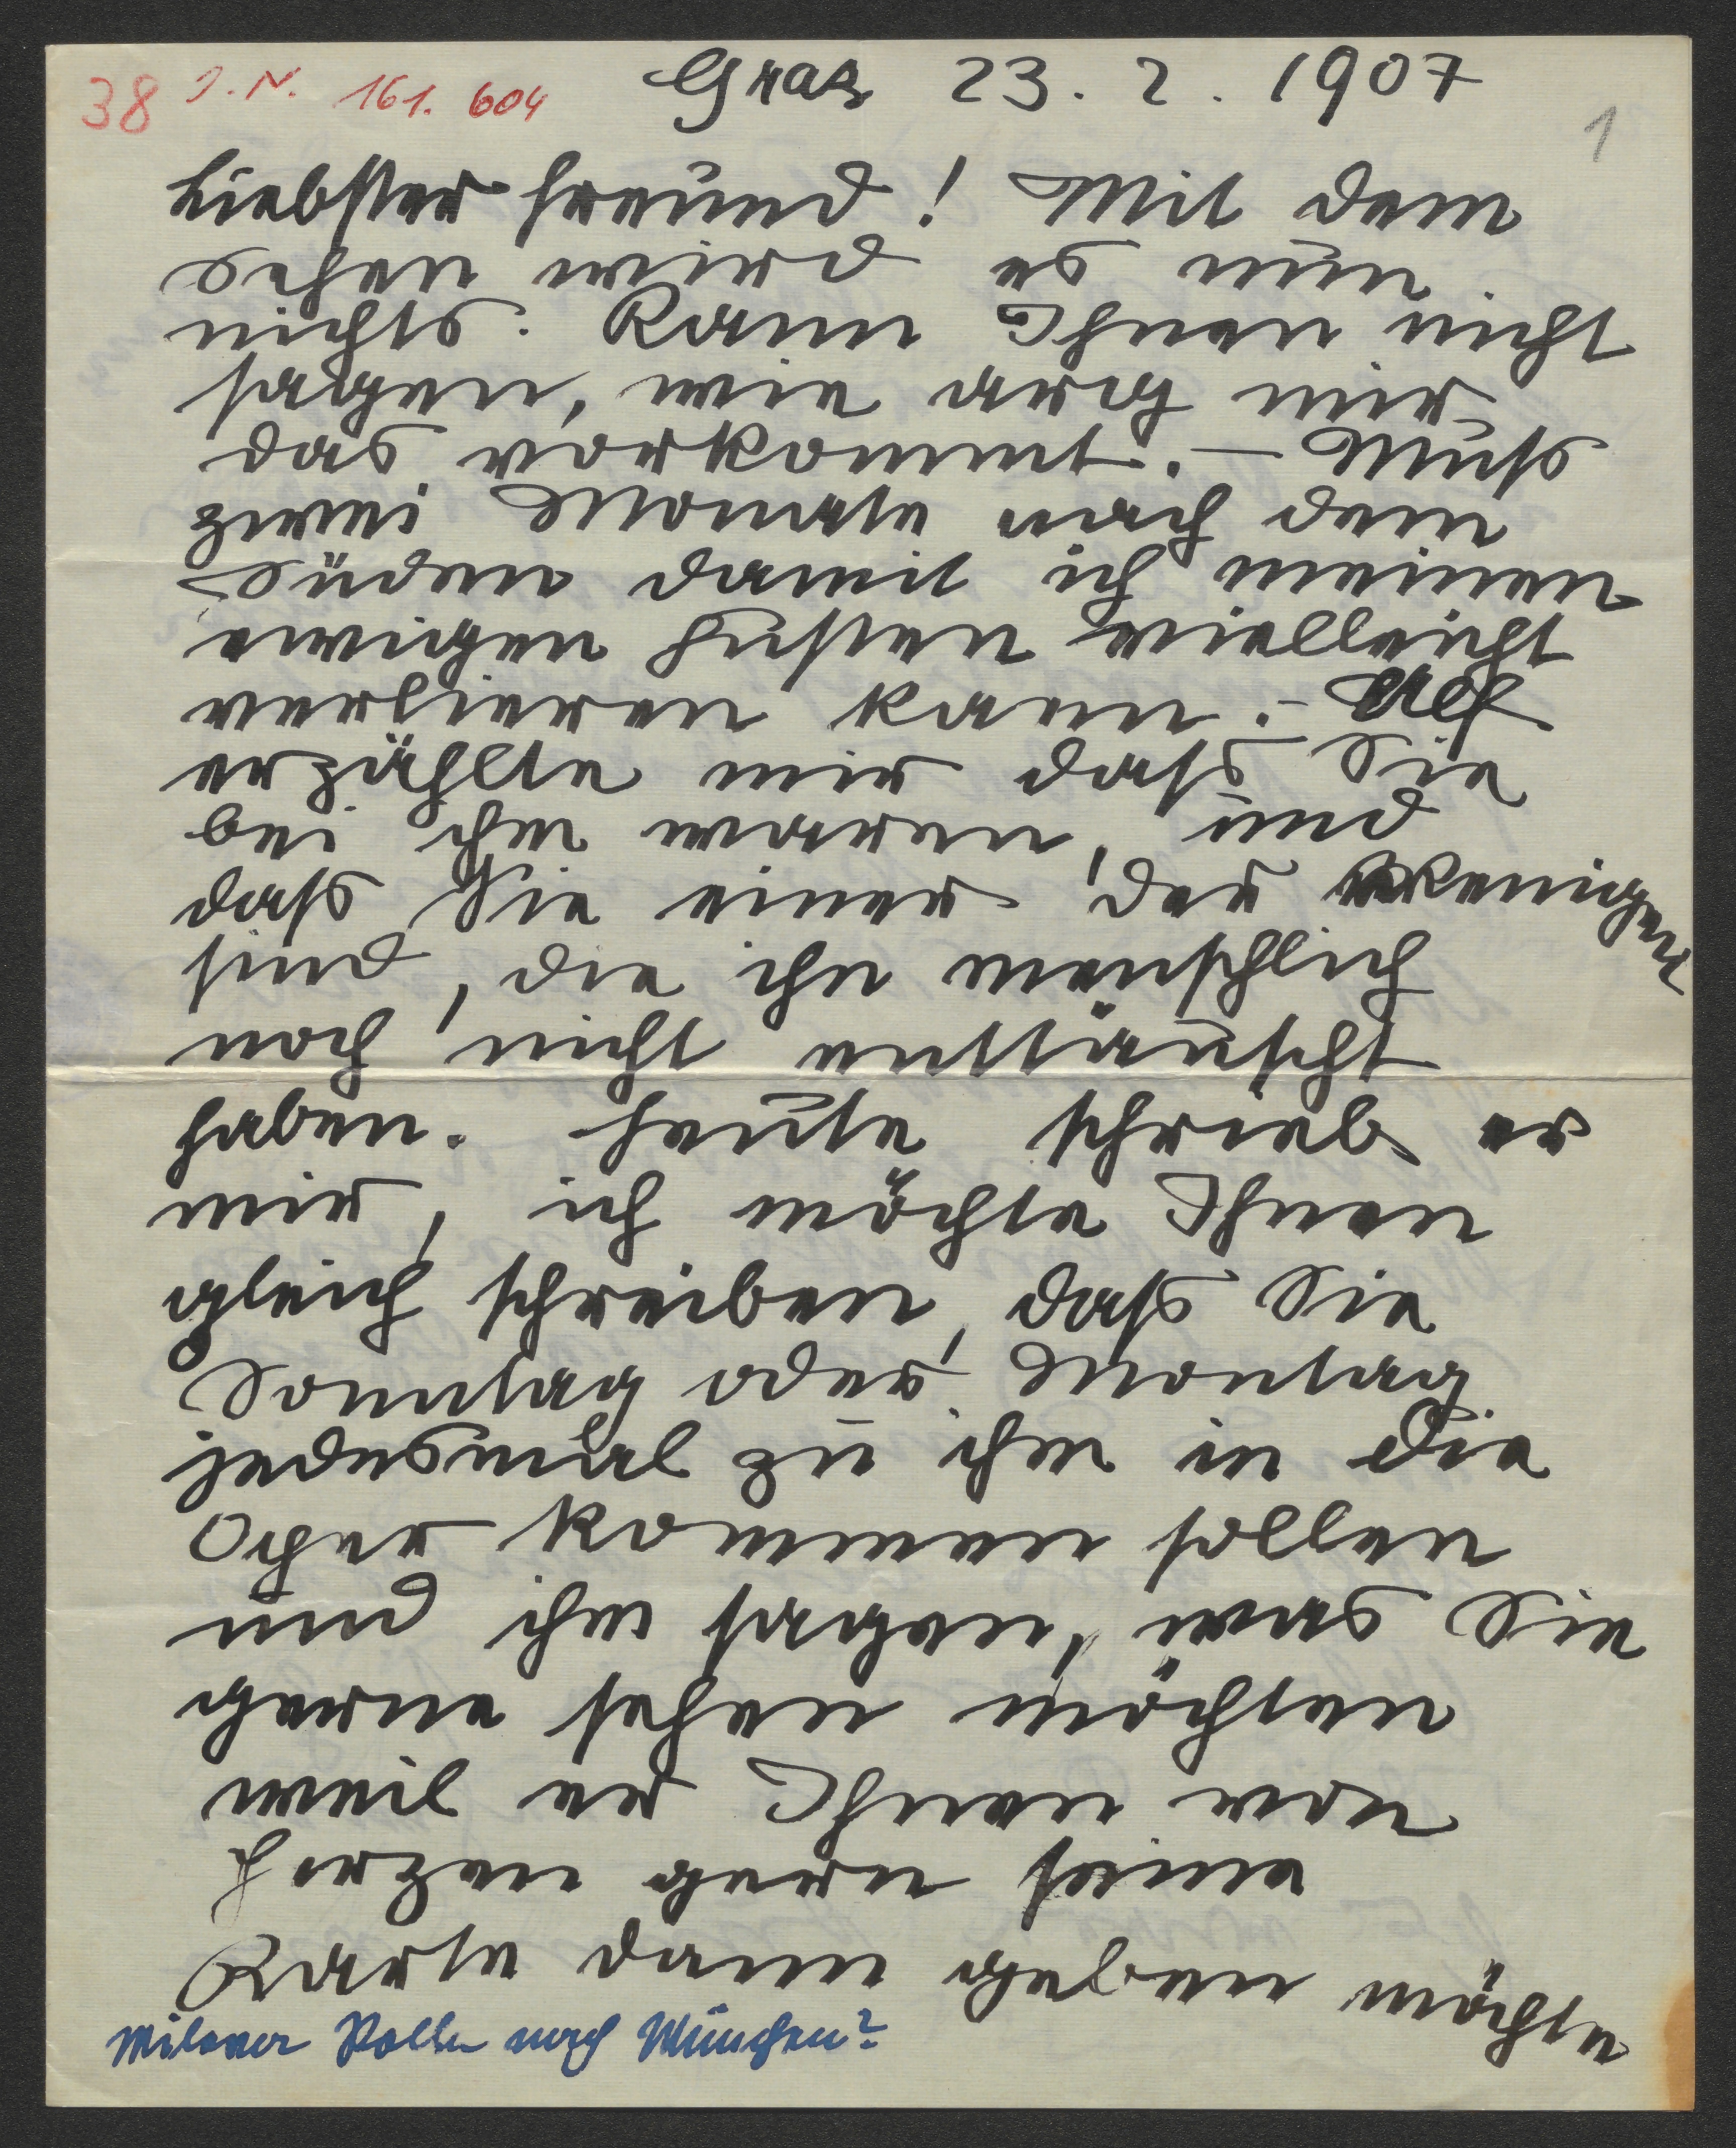 38 J.N. 161.604 Graz 23. 2. 1907
1
Liebster Freund! Mit dem
Sehen wird es nun
nichts. Kann Ihnen nicht
sagen, wie arg mir
das vorkommt. – Muß
zwei Monate nach dem
Süden damit ich meinen
ewigen Husten vielleicht
verlieren kann. –
erzählte mir daß Sie
bei ihm waren, und
daß Sie einer der wenigen
sind, die ihn menschlich
noch nicht enttäuscht
haben. Heute schrieb er
mir, ich möchte Ihnen
gleich schreiben, daß Sie
Sonntag oder Montag
jedesmal zu ihm in die
Oper kommen sollen
und ihm sagen, was Sie
gerne sehen möchten
weil er Ihnen von
Herzen gern seine
Karte dann geben möchte
Milener Roller nach München?